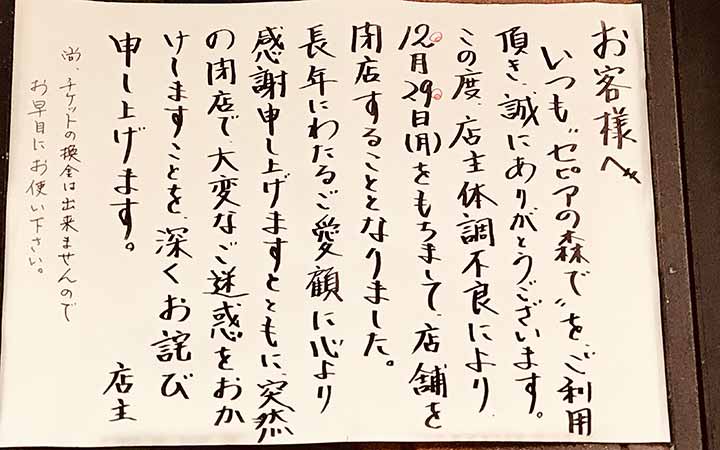 お客様へ
いつも"セピアの森で"を、ご利用
頂き、誠にありがとうございます。
この度、店主体調不良により
12月29日(月)をもちまして、店舗を
閉店することとなりました。
長年にわたるご愛顧に心より
感謝申し上げますとともに、突然
の閉店で、大変なご迷惑をおか
けしますことを、深くお詫び
申し上げます。
店主
尚、チケットの換金は出来ませんので
お早目にお使い下さい。